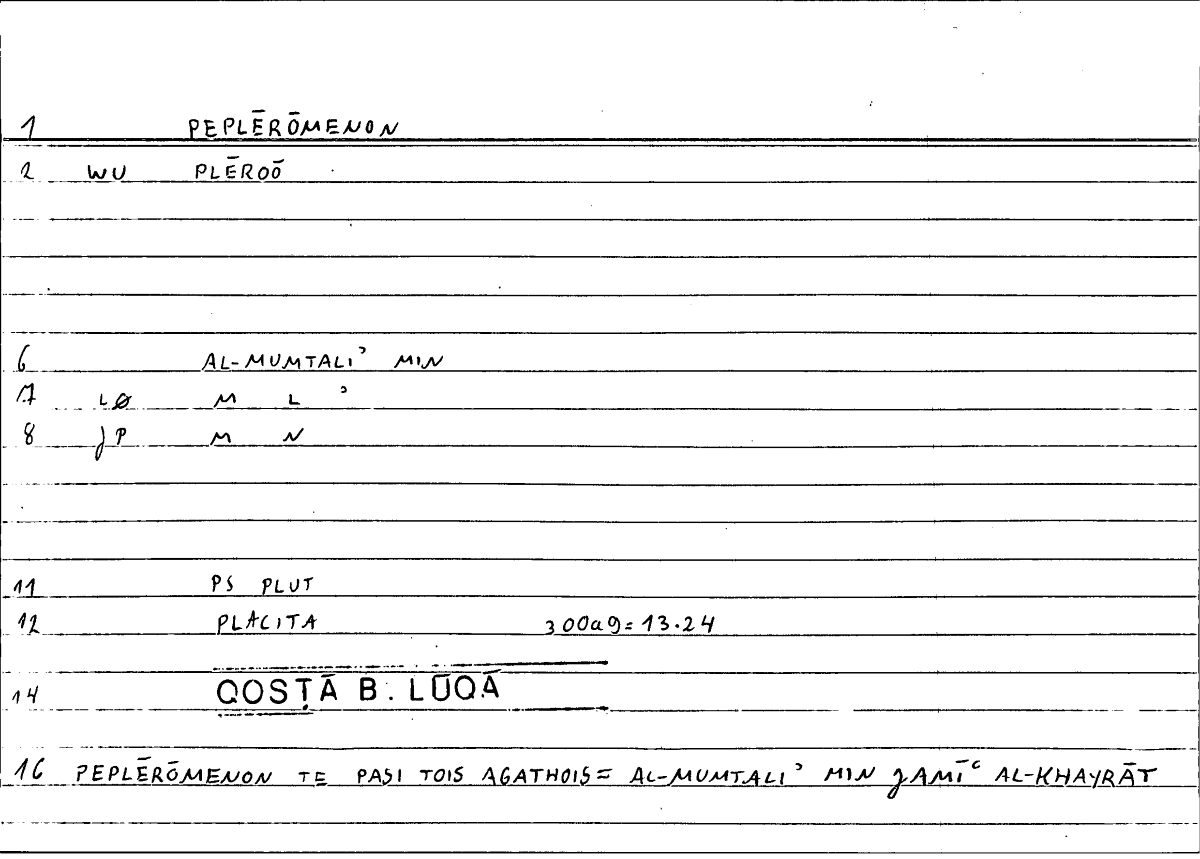 1 PEPLĒRŌMENON
2 WU PLĒROŌ
6 AL-MUMTALIʾ MIN
7 LØ M L ʾ
8 JP M N
11 PS PLUT
12 PLACITA 300a9=13.24
14 QOSṬĀ B. LŪQĀ
16 PEPLĒRŌMENON TE PASI TOIS AGATHOIS= AL-MUMTALIʾ MIN JAMĪʿ AL-KHAYRĀT